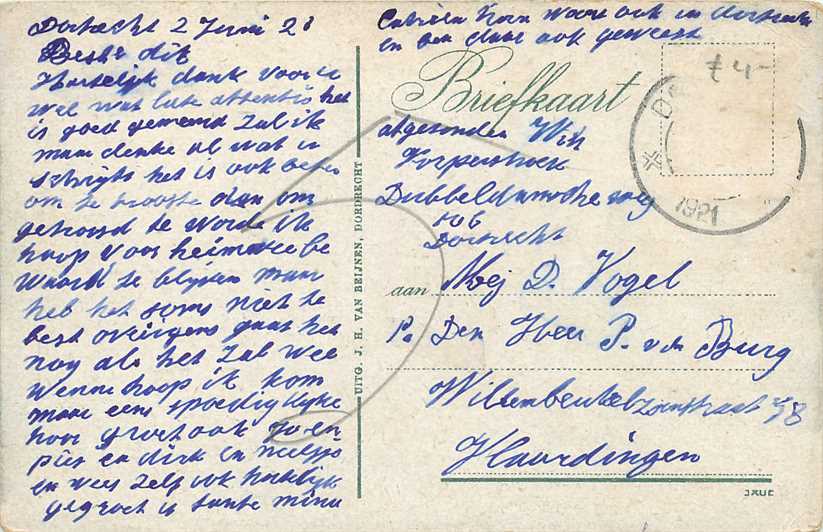 Dordrecht 2 Juni 21
Beste dik
Hartelijk dank voor u
wel wat late attentie het
is goed gemeend zal ik
maar denke al wat u
schrijft het is ook beter
om te trooste dan om
getroost te worde ik
hoop voor heimwee be
waard te blijven maar
heb het soms niet te
best overigens gaat het
nog al het zal wel
wenne hoop ik kom
maar eens spoedig kijke
hoor groet ook
piet en dirk en neeltje
en wees zelf ook hartelijk
gegroet v tante mina
woont ook in dordrecht
en ben daar ook geweest
Briefkaart
£ 4-
1921
afgezonden Win
Korpershoek
Dubbeldamsche weg
106
Dordrecht
aan Mej D. Vogel
P. Den Heer P. v d Burg
Willem Beukelzoonstraat 78
Vlaardingen
UITG. J. H. VAN BEIJNEN, DORDRECHT
JAUE